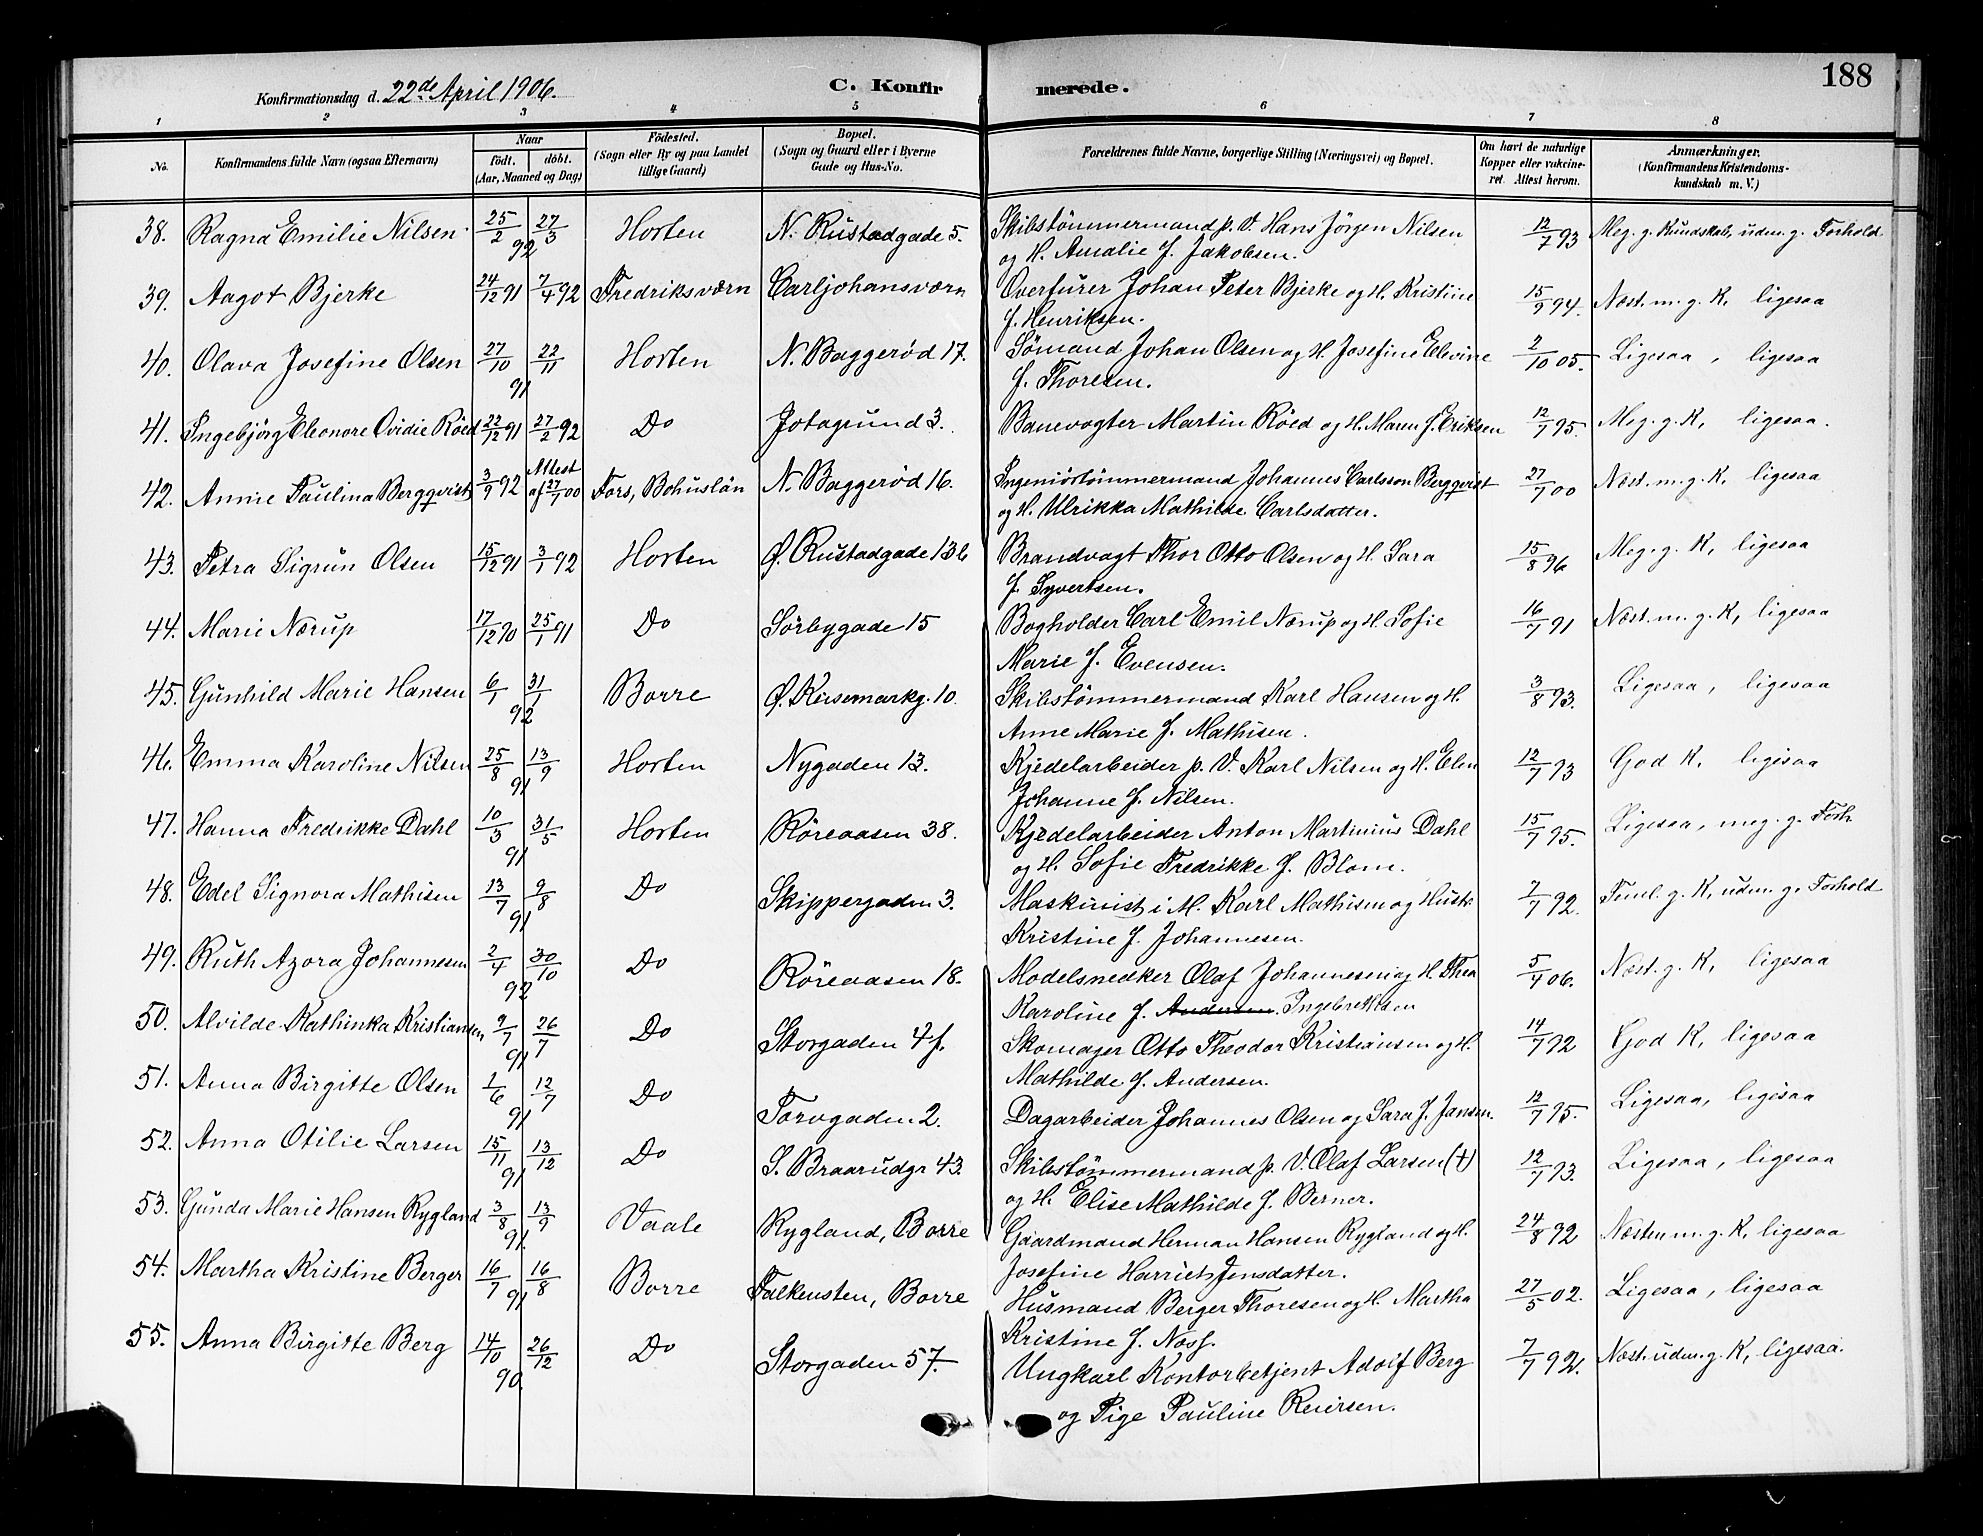 188
Konfirmationsdag d. 22de April 1906.
C. Konfirmerede.
1 2 3 4 5 6 7 8
No.
Konfirmandens fulde Navn (ogsaa Efternavn)
Naar
födt. döbt.
(Aar, Maaned og Dag)
Födested.
(Sogn eller By og paa Landet
tillige Gaard)
Bopæl.
(Sogn og Gaard eller i Byerne
Gade og Hus-No.
Forældrenes fulde Navne, borgerlige Stilling (Næringsvei) og Bopæl.
Om havt de naturlige
Kopper eller vakcine-
ret. Attest herom.
Anmærkninger.
(Konfirmandens Kristendoms-
kundskab m. V.)
38. Ragna Emilie Nilsen 25/2 27/3 92 Horten N. Rustadgade 5. Skibstömmermand p. V. Hans Jörgen Nilsen 12/7 93 Meg. g. Kundskab, udm. g. Forhold
og H. Amalie f. Jakobsen.
39. Aagot Bjerke 24/12 91 7/4 92 Fredriksværn Carljohansværn Overfurer Johan Peter Bjerke og H. Kristine 15/9 94. Næst. m. g. K, ligesaa
f. Henriksen.
40. Olava Josefine Olsen 27/10 22/11 91 Horten N. Baggerød 17. Sömand Johan Olsen og H. Josefine Elevine 2/10 05. Ligesaa, ligesaa
f. Thoresen.
41. Ingebjörg Eleonore Ovidie Röed 22/12 91 27/2 92 Do Jotagrund 3. Banevogter Martin Röed og H. Maren f. Eriksen 12/7 95. Meg. g. K, ligesaa.
42. Annie Paulina Bergqvist 3/9 92 Attest af 27/7 00 Fors, Bohuslän N. Baggerød 16. Ingeniörtömmermand Johannes Carlsson Bergqvist 27/7 00 Næst. m. g. K, ligesaa
og H. Ulrikka Mathilde Carlsdatter.
43. Petra Sigrun Olsen 15/12 91 3/1 92 Horten Ø. Rustadgade 13b Brandvagt Thor Otto Olsen og H. Sara 15/8 96 Meg. g. K, ligesaa
f. Syvertsen.
44. Marie Nærup 17/12 90 25/1 91 Do Sörbygade 15 Bogholder Carl Emil Nærup og H. Sofie 16/7 91 Næst. m. g. K, ligesaa
Marie f. Evensen.
45. Gunhild Marie Hansen 6/1 31/1 92 Borre Ø. Keisemarkg. 10. Skibstömmermand Karl Hansen og H. 3/8 93. Ligesaa, ligesaa
Anne Marie f. Mathisen.
46. Emma Karoline Nilsen 25/8 13/9 91 Horten Nygaden 13. Kjedelarbeider p. V. Karl Nilsen og H. Elen 12/7 93 God K, ligesaa
Johanne f. Nilsen.
47. Hanna Fredrikke Dahl 10/3 31/5 91 Horten Röreaasen 38. Kjedelarbeider Anton Martinius Dahl 15/7 95. Ligesaa, meg. g. Forh
og H. Sofie Fredrikke f. Blom.
48. Edel Signora Mathisen 13/7 9/8 91 Do Skippergaden 3. Maskinist i M. Karl Mathisen og Hustr 7/7 92. Teml. g. K, udm. g. Forhold
Kristine f. Johannesen.
49. Ruth Azora Johannesen 2/4 30/10 92 Do Röreaasen 18. Modelsnedker Olaf Johannesen og H. Thea 5/4 06. Næst. g. K, ligesaa
Karoline f. Andersen. Ingebretsen
50. Alvilde Kathinka Kristiansen 9/7 26/7 91 Do Storgaden 4f. Skomager Otto Theodor Kristiansen og H. 14/7 92 God K, ligesaa
Mathilde f. Andersen.
51. Anna Birgitte Olsen 1/6 12/7 91 Do Torvgaden 2. Dagarbeider Johannes Olsen og Sara f. Jansen. 12/7 95. Ligesaa, ligesaa
52. Anna Otilie Larsen 15/11 13/12 91 Do S. Braarudgt 43. Skibstömmermand p. V. Olaf Larsen (†) 12/7 93. Ligesaa, ligesaa
og H. Elise Mathilde f. Berner.
53. Gunda Marie Hansen Rygland 3/8 13/9 91. Vaale Rygland, Borre Gaardmand Herman Hansen Rygland og H. 24/8 92 Næsten m. g. K, ligesaa
Josefine Harriet Jensdatter.
54. Martha Kristine Berger 16/7 16/8 91 Borre Falkensten, Borre Husmand Berger Thoresen og H. Martha 27/5 02. Ligesaa, ligesaa
Kristine f. Næss.
55. Anna Birgitte Berg 14/10 26/12 90. Do Storgaden 57. Ungkarl Kontorbetjent Adolf Berg 7/7 92. Næst. udm. g. K, ligesaa.
og Pige Pauline Reiersen.